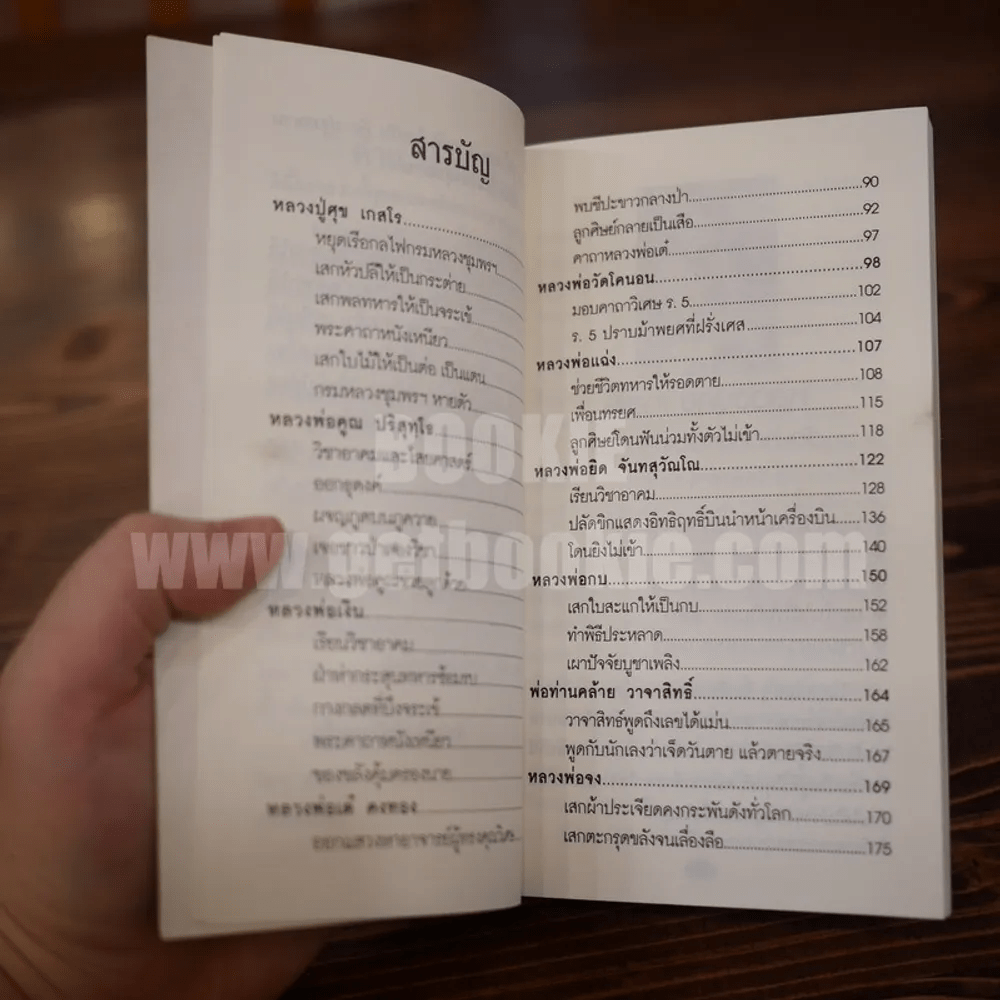 สารบัญ
หลวงปู่ศุข เกสโร
หยุดเรือกลไฟกรมหลวงชุมพรฯ
เสกหัวปลีให้เป็นกระต่าย
เสกพลทหารให้เป็นจระเข้
พระคาถาหนังเหนียว
เสกใบไม้ให้เป็นต่อ เป็นแตน
กรมหลวงชุมพรฯ หายตัว
หลวงพ่อคูณ ปริสุทฺโธ
วิชาอาคมและไสยศาสตร์
ออกธุดงค์
หลวงพ่อเงิน
เรียนวิชาอาคม
พระคาถาหนังเหนียว
หลวงพ่อเต๋ คงทอง
พบชีปะขาวกลางป่า 90
ลูกศิษย์กลายเป็นเสือ 92
คาถาหลวงพ่อเต๋ 97
หลวงพ่อวัดโคนอน 98
มอบคาถาวิเศษ ร. 5 102
ร. 5 ปราบม้าพยศที่ฝรั่งเศส 104
หลวงพ่อแฉ่ง 107
ช่วยชีวิตทหารให้รอดตาย 108
เพื่อนทรยศ 115
ลูกศิษย์โดนฟันน่วมทั้งตัวไม่เข้า 118
หลวงพ่อยิด จันทสุวัณโณ 122
เรียนวิชาอาคม 128
ปลัดขิกแสดงอิทธิฤทธิ์บินนำหน้าเครื่องบิน 136
โดนยิงไม่เข้า 140
หลวงพ่อกบ 150
เสกใบสะแกให้เป็นกบ 152
ทำพิธีประหลาด 158
เผาปัจจัยบูชาเพลิง 162
พ่อท่านคล้าย วาจาสิทธิ์ 164
วาจาสิทธ์พูดถึงเลขได้แม่น 165
พูดกับนักเลงว่าเจ็ดวันตาย แล้วตายจริง 167
หลวงพ่อจง 169
เสกผ้าประเจียดคงกระพันดังทั่วโลก 170
เสกตะกรุดขลังจนเลื่องลือ 175
www.getbookie.com